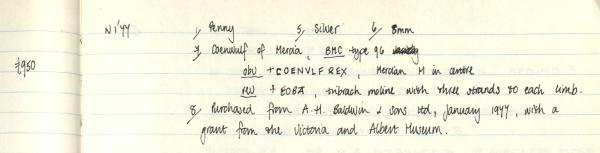 N1'77 1, Penny 5, Silver 6, 8mm
7, Coenwulf of Mercia, BMC type 96
£950 obv +COENVLF REX, Mercian M in centre
rev + EOBA, tribrach moline with three strands to each limb.
8, Purchased from A.H. Baldwin & Sons Ltd, January 1977, with a
grant from the Victoria and Albert Museum.